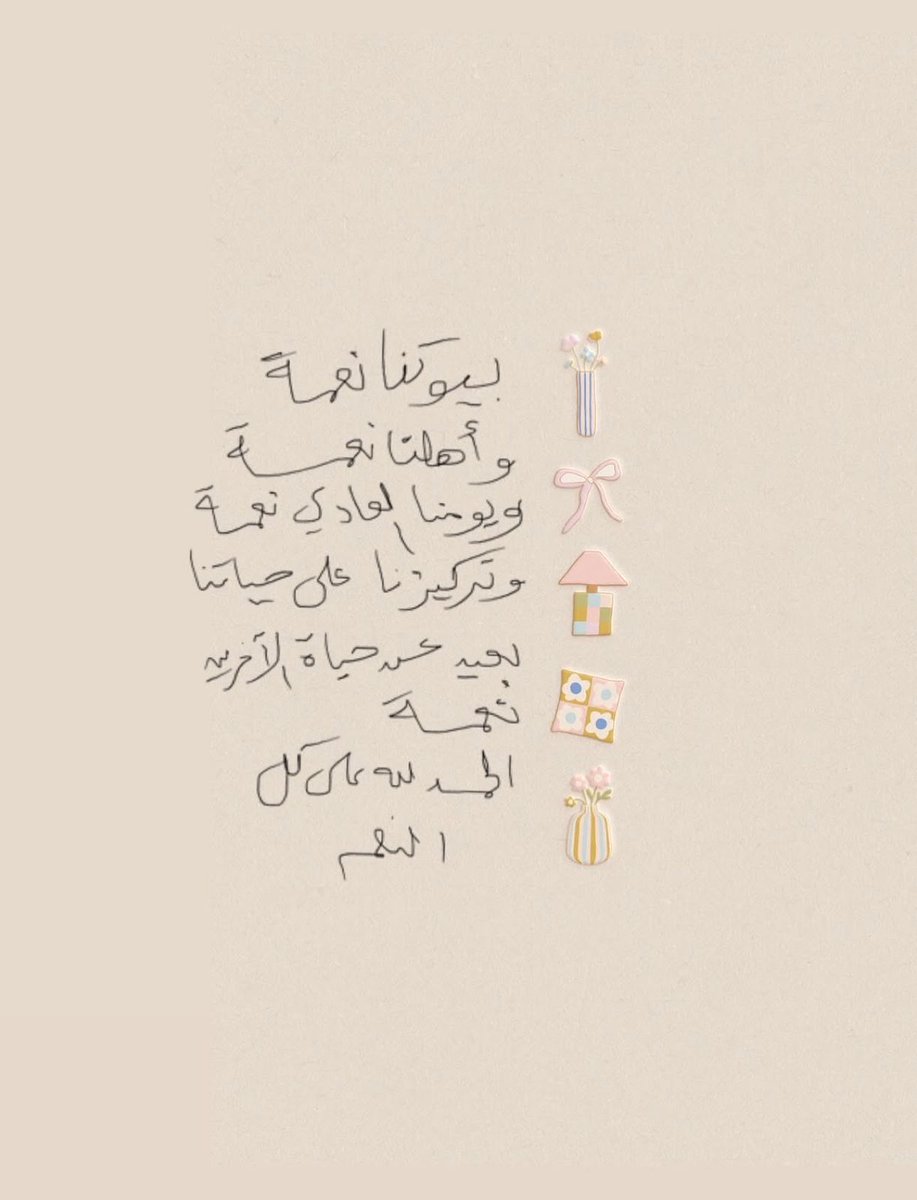 بيوتنا نعمة
وأهلنا نعمة
ويومنا العادي نعمة
وتركيزنا على حياتنا
بعيد عن حياة الآخرين
نعمة
الحمد لله على كل
النعم